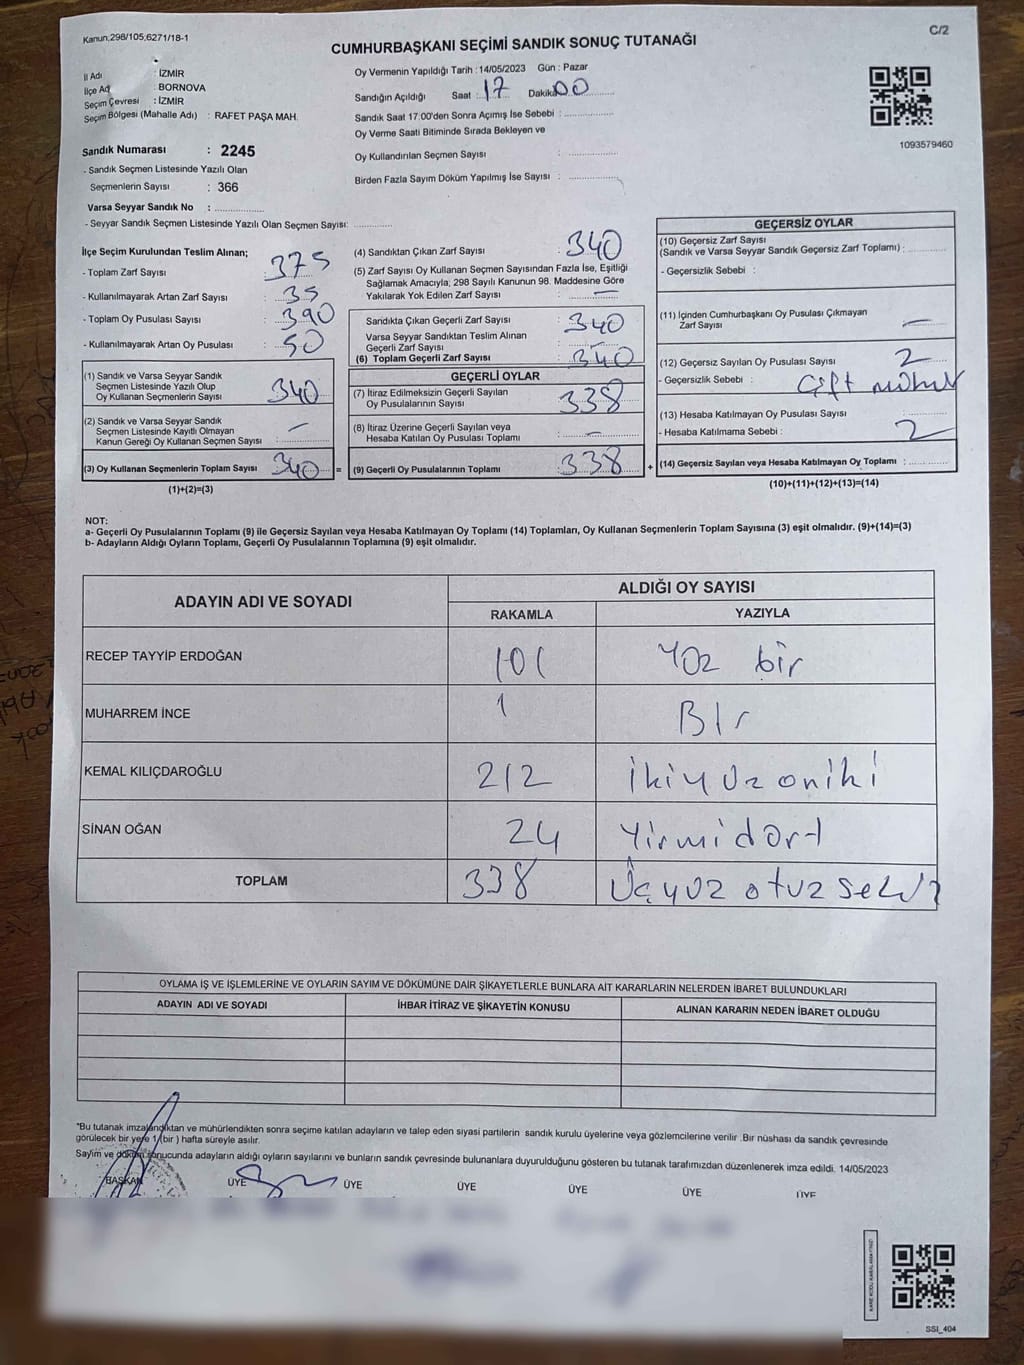 Kanun;298/105,6271/18-1
C/2
CUMHURBAŞKANI SEÇİMİ SANDIK SONUÇ TUTANAĞI
İl Adı : İZMİR
İlçe Ad : BORNOVA
Seçim Çevresi : İZMİR
Seçim Bölgesi (Mahalle Adı) : RAFET PAŞA MAH.
Oy Vermenin Yapıldığı Tarih : 14/05/2023 Gün : Pazar
Sandığın Açıldığı Saat : 17 Dakika 00
Sandık Saat 17:00'den Sonra Açımış İse Sebebi :
Oy Verme Saati Bitiminde Sırada Bekleyen ve
Oy Kullandırılan Seçmen Sayısı :
Birden Fazla Sayım Döküm Yapılmış İse Sayısı :
1093579460
Sandık Numarası : 2245
- Sandık Seçmen Listesinde Yazılı Olan
Seçmenlerin Sayısı : 366
Varsa Seyyar Sandık No :
- Seyyar Sandık Seçmen Listesinde Yazılı Olan Seçmen Sayısı:
İlçe Seçim Kurulundan Teslim Alınan;
- Toplam Zarf Sayısı : 375
- Kullanılmayarak Artan Zarf Sayısı : 35
- Toplam Oy Pusulası Sayısı : 390
- Kullanılmayarak Artan Oy Pusulası : 50
(1) Sandık ve Varsa Seyyar Sandık
Seçmen Listesinde Yazılı Olup
Oy Kullanan Seçmenlerin Sayısı : 340
(2) Sandık ve Varsa Seyyar Sandık
Seçmen Listesinde Kayıtlı Olmayan
Kanun Gereği Oy Kullanan Seçmen Sayısı : —
(3) Oy Kullanan Seçmenlerin Toplam Sayısı : 340 =
(1)+(2)=(3)
(4) Sandıktan Çıkan Zarf Sayısı : 340
(5) Zarf Sayısı Oy Kullanan Seçmen Sayısından Fazla İse, Eşitliği
Sağlamak Amacıyla; 298 Sayılı Kanunun 98. Maddesine Göre
Yakılarak Yok Edilen Zarf Sayısı : —
Sandıkta Çıkan Geçerli Zarf Sayısı : 340
Varsa Seyyar Sandıktan Teslim Alınan
Geçerli Zarf Sayısı : —
(6) Toplam Geçerli Zarf Sayısı : 340
GEÇERLİ OYLAR
(7) İtiraz Edilmeksizin Geçerli Sayılan
Oy Pusulalarının Sayısı : 338
(8) İtiraz Üzerine Geçerli Sayılan veya
Hesaba Katılan Oy Pusulası Toplamı : —
(9) Geçerli Oy Pusulalarının Toplamı : 338 +
GEÇERSİZ OYLAR
(10) Geçersiz Zarf Sayısı
(Sandık ve Varsa Seyyar Sandık Geçersiz Zarf Toplamı) :
- Geçersizlik Sebebi :
(11) İçinden Cumhurbaşkanı Oy Pusulası Çıkmayan
Zarf Sayısı : —
(12) Geçersiz Sayılan Oy Pusulası Sayısı : 2
- Geçersizlik Sebebi : Çift mühür
(13) Hesaba Katılmayan Oy Pusulası Sayısı :
- Hesaba Katılmama Sebebi : 2
(14) Geçersiz Sayılan veya Hesaba Katılmayan Oy Toplamı :
(10)+(11)+(12)+(13)=(14)
NOT:
a- Geçerli Oy Pusulalarının Toplamı (9) ile Geçersiz Sayılan veya Hesaba Katılmayan Oy Toplamı (14) Toplamları, Oy Kullanan Seçmenlerin Toplam Sayısına (3) eşit olmalıdır. (9)+(14)=(3)
b- Adayların Aldığı Oyların Toplamı, Geçerli Oy Pusulalarının Toplamına (9) eşit olmalıdır.
ADAYIN ADI VE SOYADI
ALDIĞI OY SAYISI
RAKAMLA YAZIYLA
RECEP TAYYİP ERDOĞAN 101 Yüz bir
MUHARREM İNCE 1 BIr
KEMAL KILIÇDAROĞLU 212 İkiyüz oniki
SİNAN OĞAN 24 Yirmidört
TOPLAM 338 Üçyüz otuz sekiz
OYLAMA İŞ VE İŞLEMLERİNE VE OYLARIN SAYIM VE DÖKÜMÜNE DAİR ŞİKAYETLERLE BUNLARA AİT KARARLARIN NELERDEN İBARET BULUNDUKLARI
ADAYIN ADI VE SOYADI İHBAR İTİRAZ VE ŞİKAYETİN KONUSU ALINAN KARARIN NEDEN İBARET OLDUĞU
"Bu tutanak imzalandıktan ve mühürlendikten sonra seçime katılan adayların ve talep eden siyasi partilerin sandık kurulu üyelerine veya gözlemcilerine verilir .Bir nüshası da sandık çevresinde
görülecek bir yere 1 (bir ) hafta süreyle asılır.
Sayım ve döküm sonucunda adayların aldığı oyların sayılarını ve bunların sandık çevresinde bulunanlara duyurulduğunu gösteren bu tutanak tarafımızdan düzenlenerek imza edildi. 14/05/2023
BAŞKAN ÜYE ÜYE ÜYE ÜYE ÜYE ÜYE
SSI_404